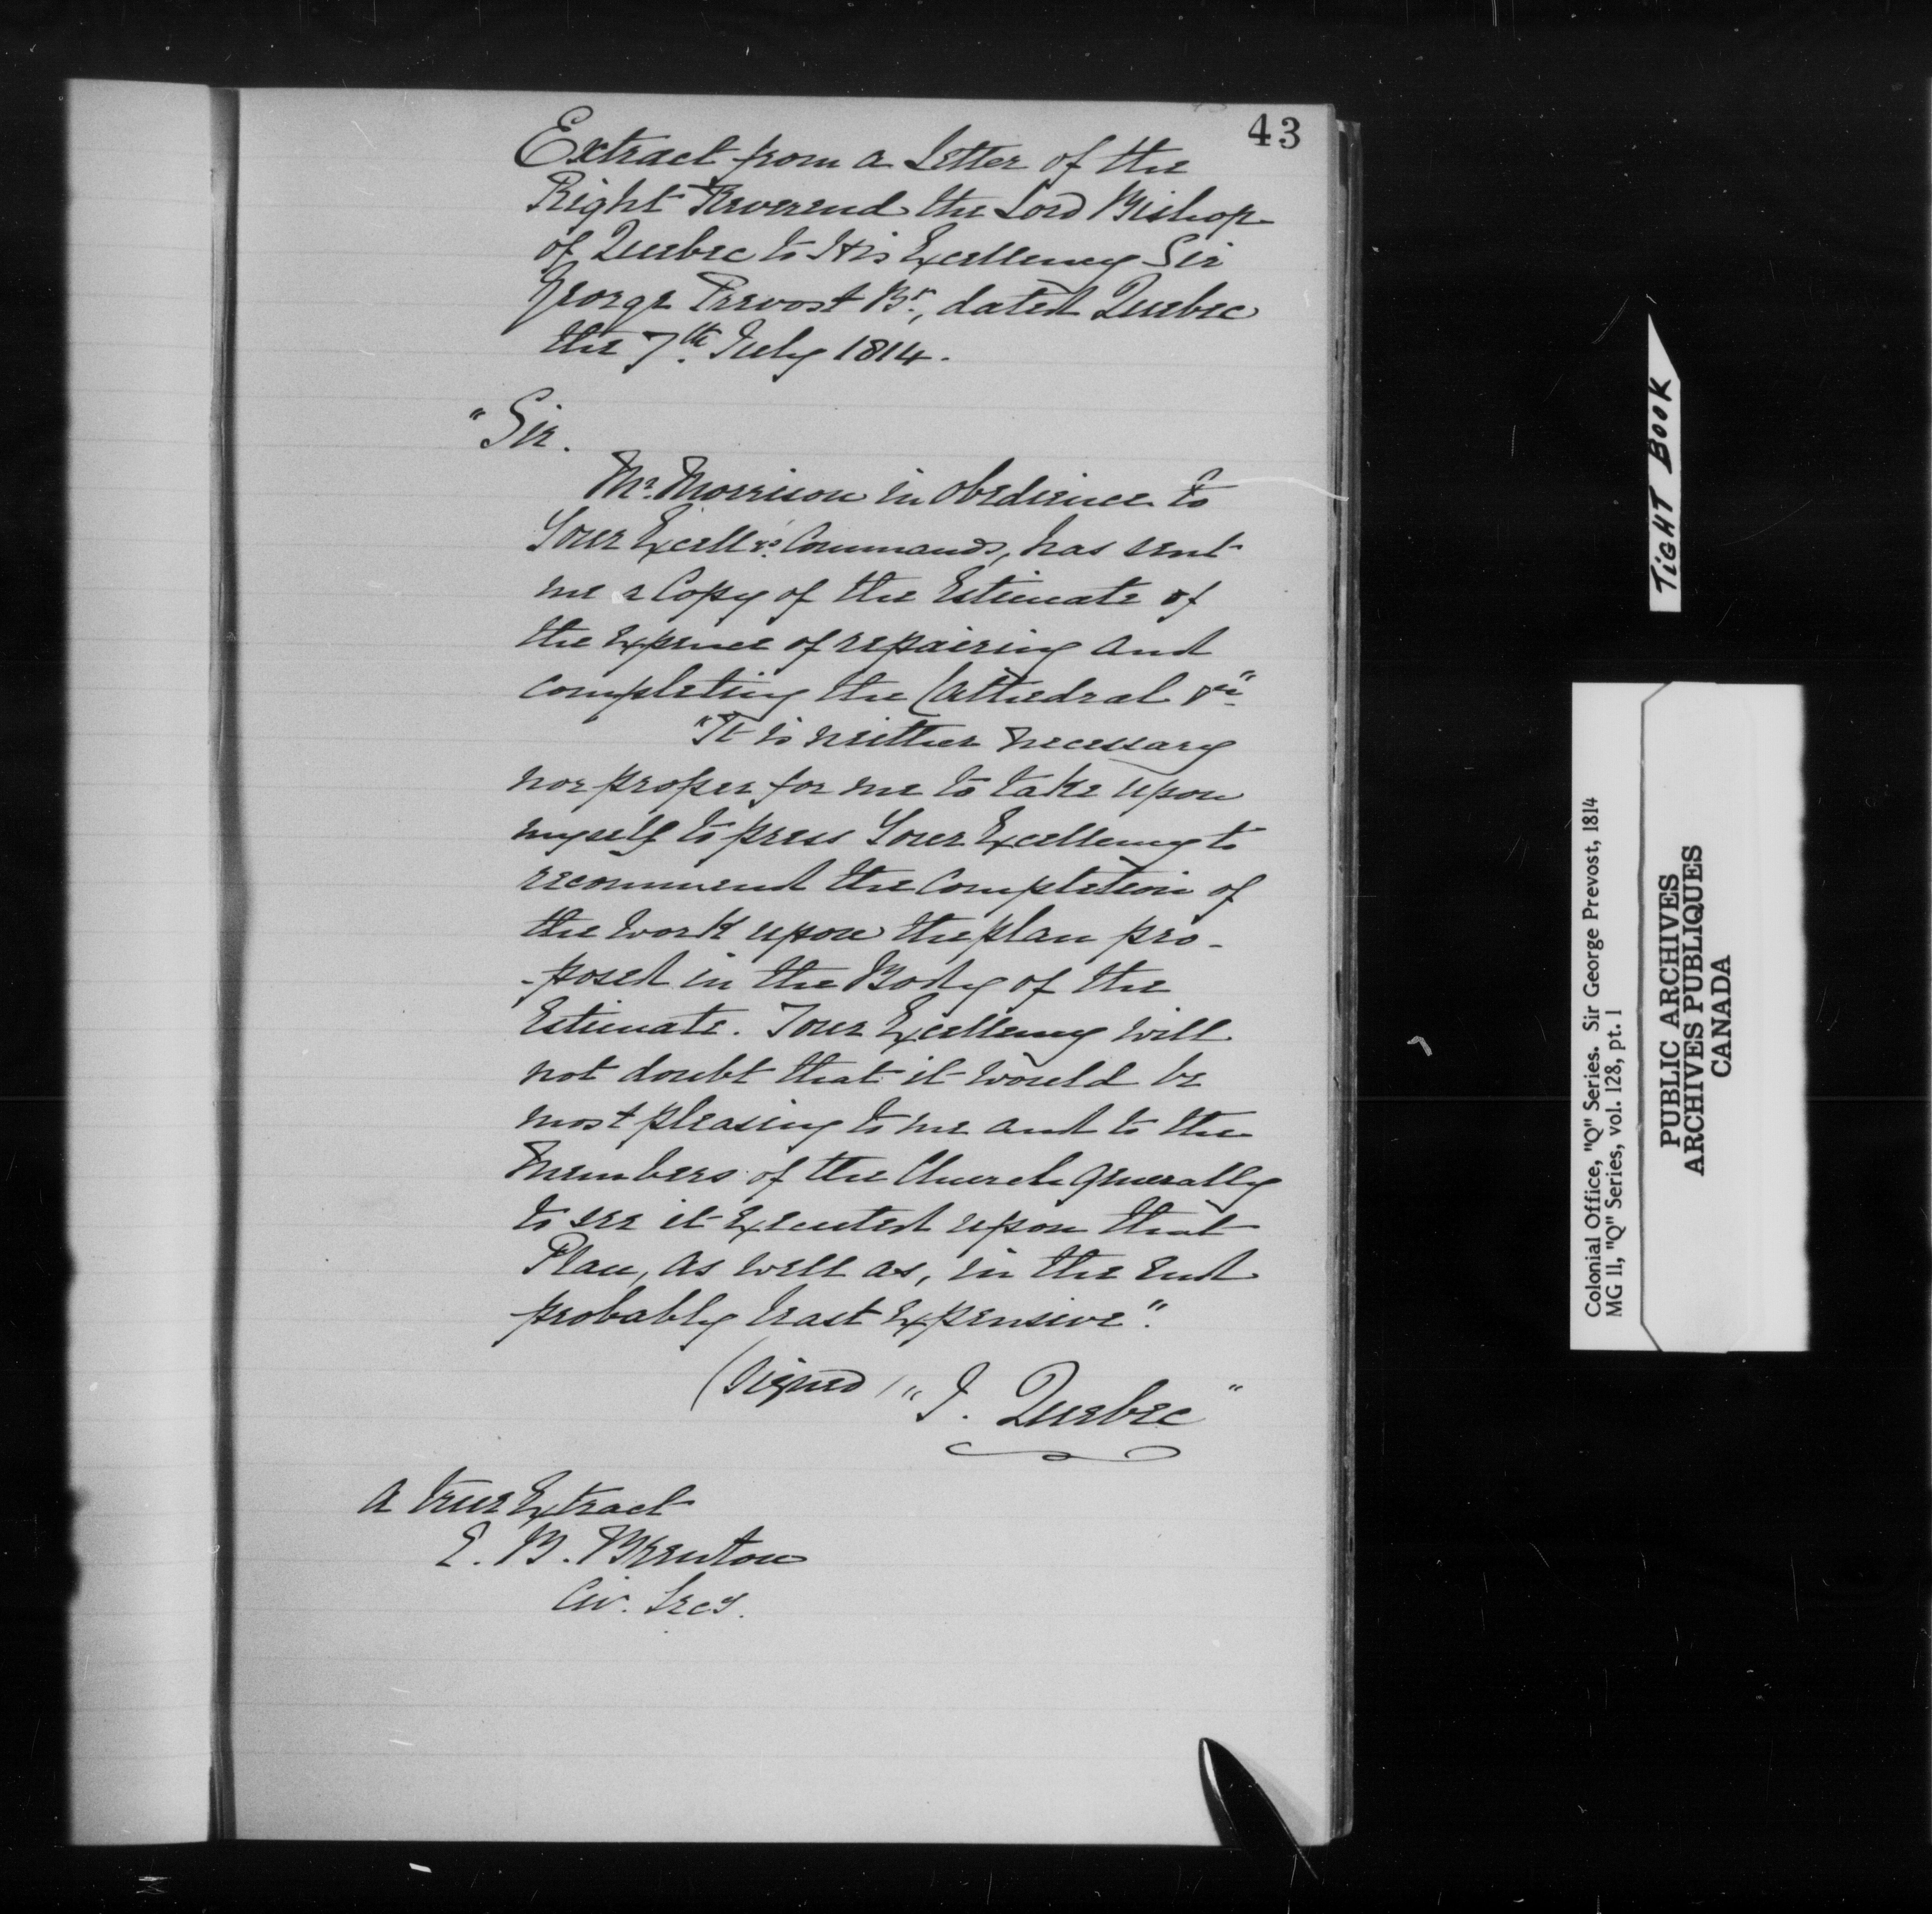 43
Extract from a Letter of the
Right Reverend the Lord Bishop
of Quebec to His Excellency Sir
George Prevost Bt., dated Quebec
the 7th July 1814.
"Sir.
Mr. Morrison in obedience to
Your Excellys Commands, has sent
me a Copy of the Estimate of
the expence of repairing and
completing the Cathedral &ca"
"It is neither necessary
nor proper for me to take upon
myself to press Your Excellency to
recommend the completion of
the work upon the plan pro-
-posed in the Body of the
Estimate. Your Excellency will
not doubt that it would be
most pleasing to me and to the
Members of the Church generally
to see it executed upon that
Plan, as well as, in the end
probably least expensive".
(Signed) "J. Quebec"
A true Extract
E. B. Brenton
Civ. Secy.
TIGHT BOOK
Colonial Office, "Q" Series. Sir George Prevost, 1814
MG 11, "Q" Series, vol. 128, pt. 1
PUBLIC ARCHIVES
ARCHIVES PUBLIQUES
CANADA